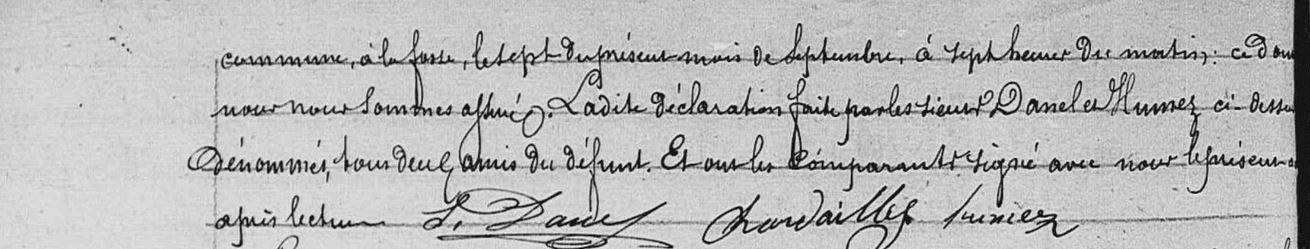 commune, à la fosse, le sept du présent mois de Septembre, à sept heures du matin; ce don
nous nous sommes assuré. Ladite déclaration faite par les sieurs Danel et Humez ci-dessu
dénommés, tous deux amis du défunt. Et ont les comparants signé avec nous le présent
après lecture L. Danel Humez